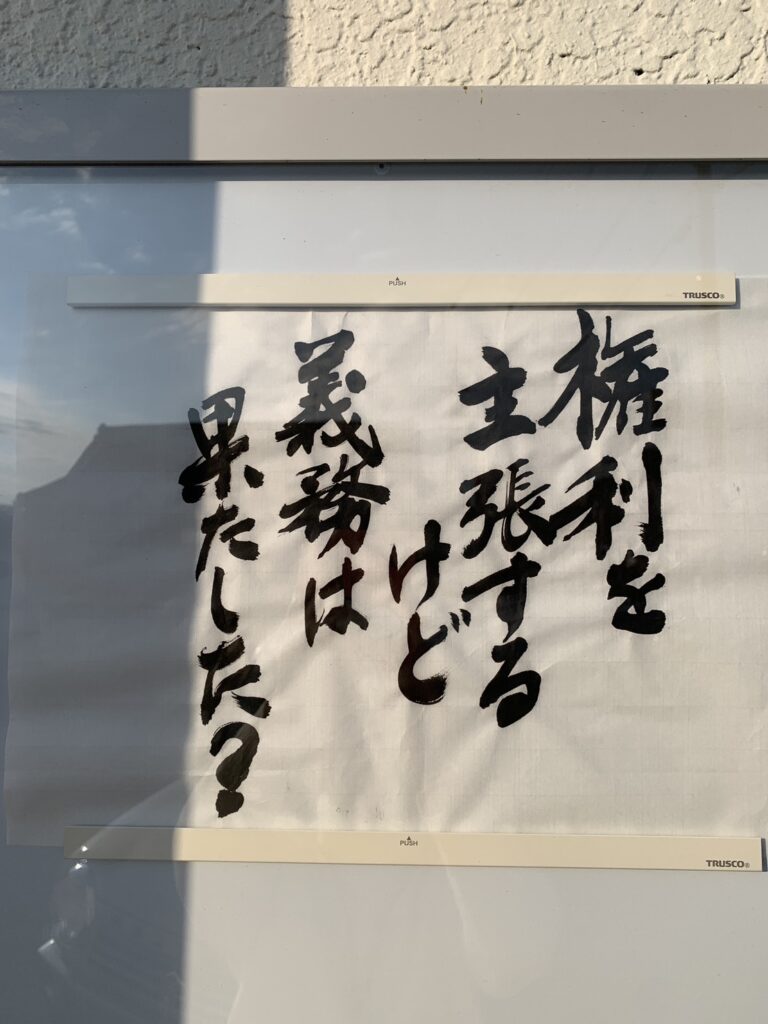 PUSH
TRUSCO®
権利を
主張する
けど
義務は
果たした?
PUSH
TRUSCO®